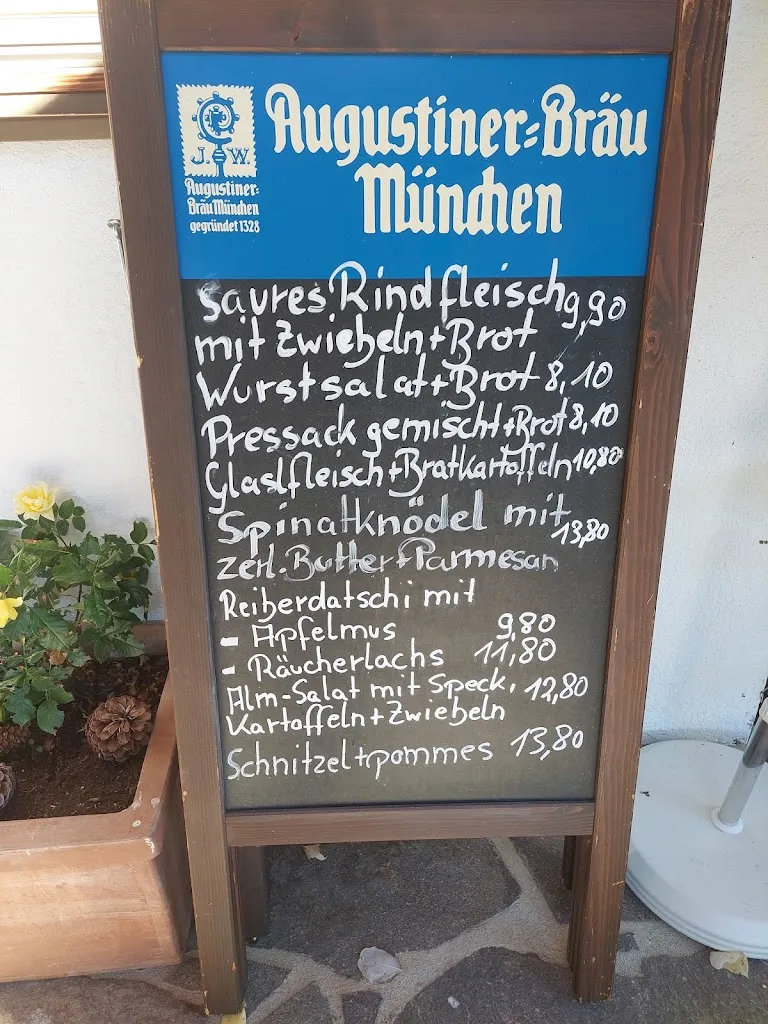 J. W.
Augustiner=
Bräu München
gegründet 1328
Augustiner=Bräu
München
saures Rindfleisch 9,90
mit Zwiebeln + Brot
Wurstsalat + Brot 8,10
Pressack gemischt + Brot 8,10
Glaslfleisch + Bratkartoffeln 10,80
Spinatknödel mit 13,80
zerl. Butter + Parmesan
Reiberdatschi mit
- Apfelmus 9,80
- Räucherlachs 11,80
Alm-Salat mit Speck, 12,80
Kartoffeln + Zwiebeln
Schnitzel + pommes 13,80